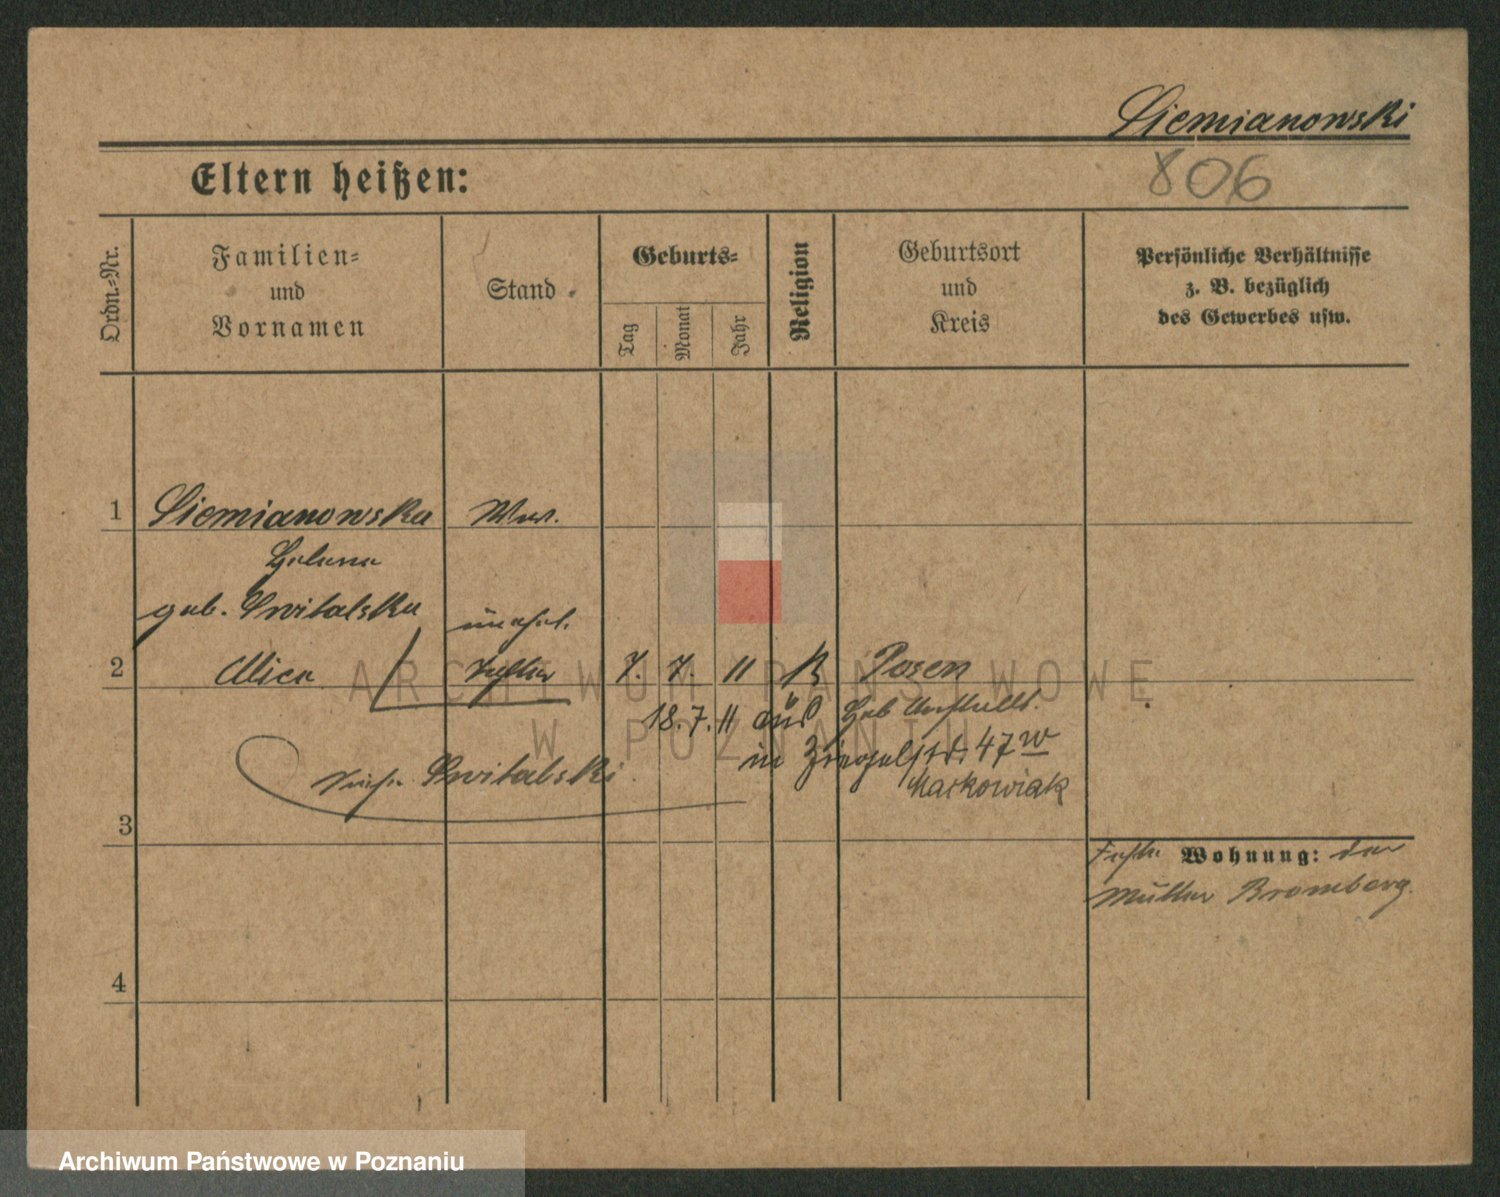 Siemianowski
806
Eltern heißen:
Ordn.-Nr.
Familien-
und
Vornamen
Stand
Geburts-
Tag
Monat
Jahr
Religion
Geburtsort
und
Kreis
Persönliche Verhältnisse
z. B. bezüglich
des Gewerbes usw.
1 Siemianowska Wwe.
Helene
geb. Switalska unehel.
2 Alice Tochter 7. 7. 11 K Posen
18. 7. 11 aus Heb
in 47 w
siehe Switalski
Markowiak
3
Wohnung: der
Mutter Bromberg.
4
ARCHIWUM PAŃSTWOWE
W POZNANIU
Archiwum Państwowe w Poznaniu